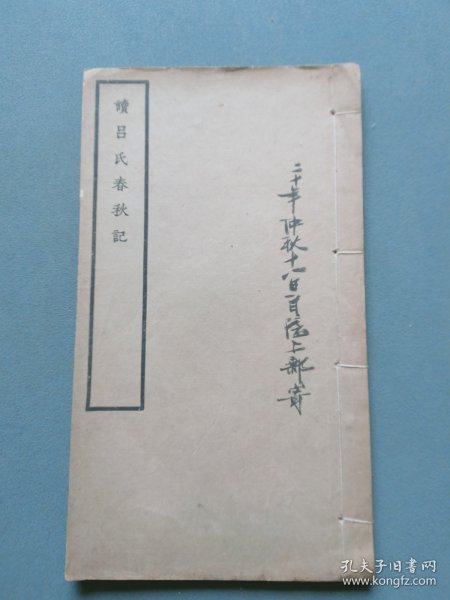 讀呂氏春秋記
二十年仲秋十八日自滬上郵寄
孔夫子旧书网
www.kongfz.com